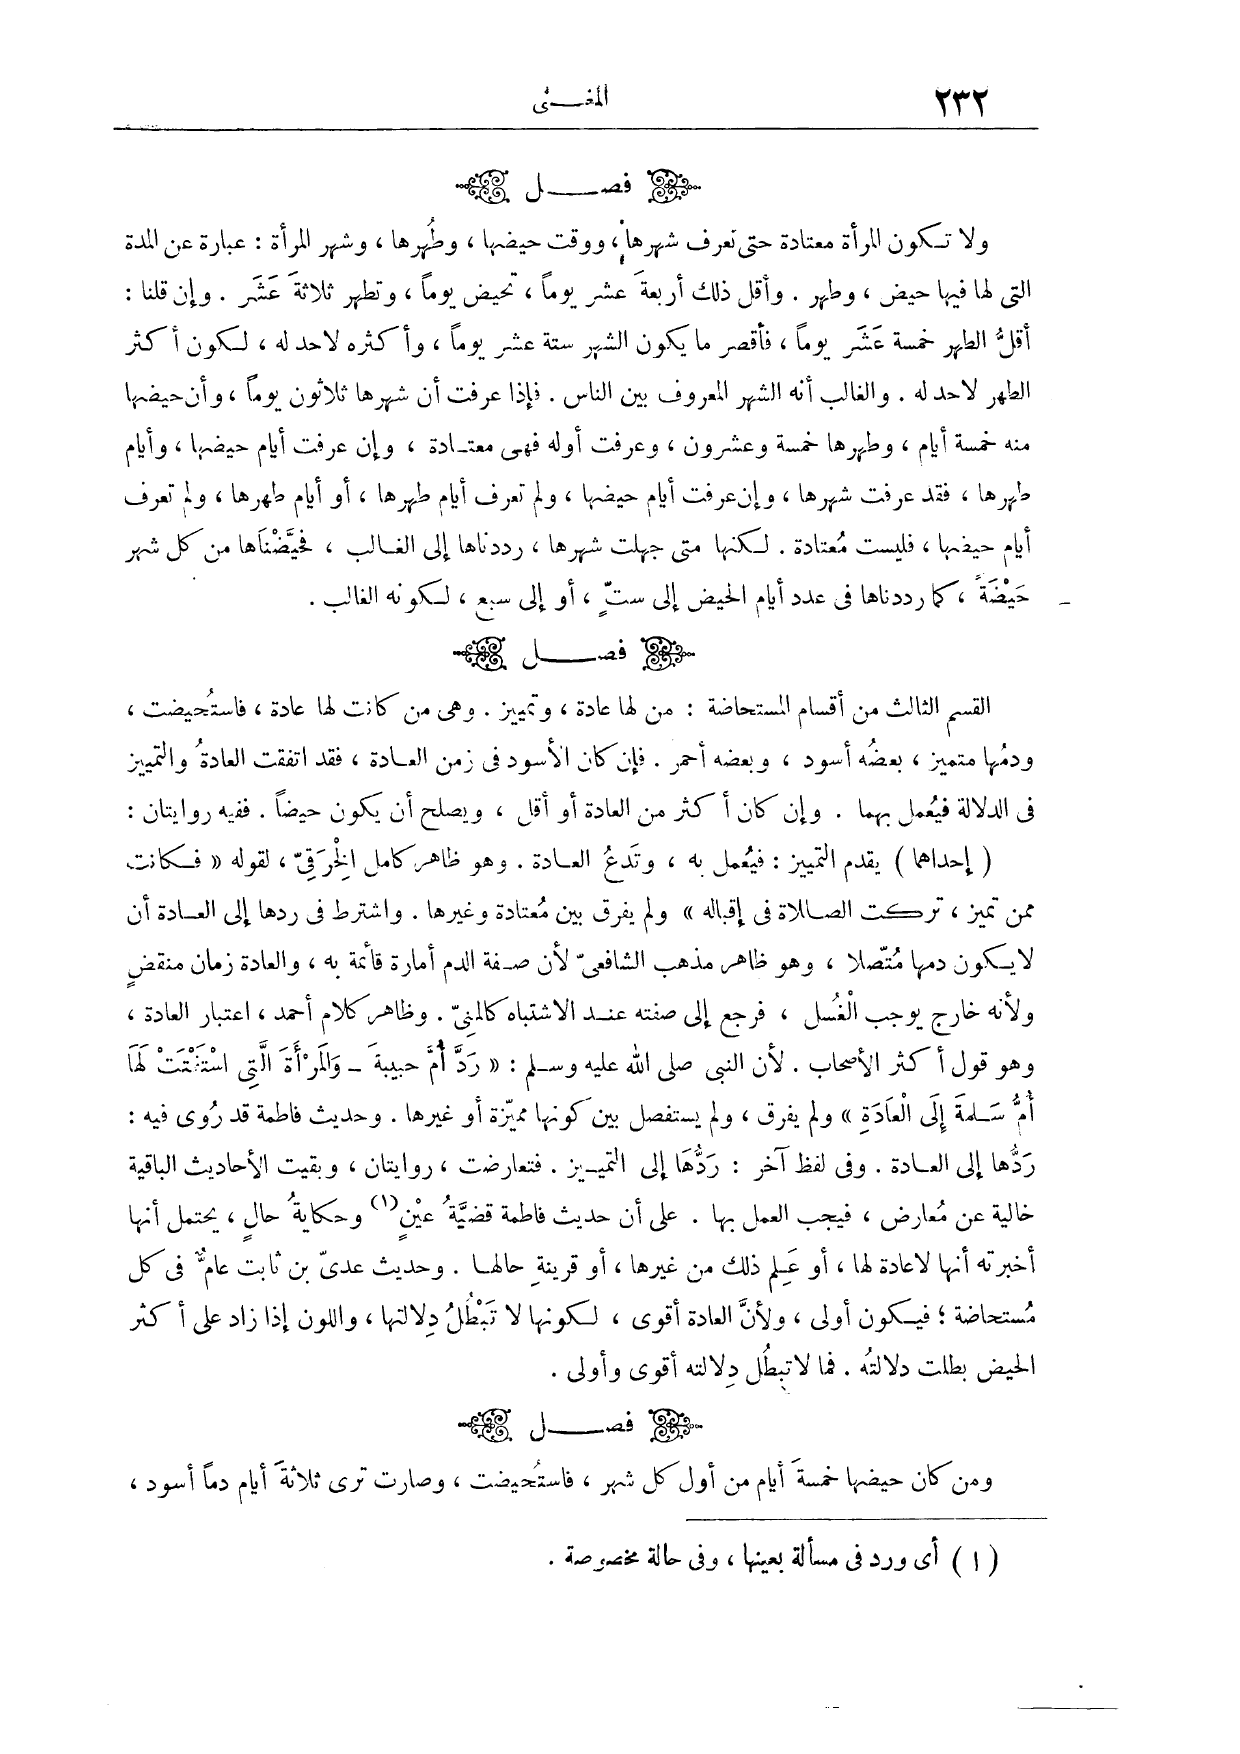 ٢٣٢
المغنى
فصل
ولا تكون المرأة معتادة حتى تعرف شهرها، ووقت حيضها، وطُهرها، وشهر المرأة : عبارة عن المدة
التى لها فيها حيض، وطهر . وأقل ذلك أربعةَ عشر يوماً، تحيض يوماً، وتطهر ثلاثةَ عَشَر . وإن قلنا :
أقلُّ الطهر خمسة عَشَر يوماً، فأقصر ما يكون الشهر ستة عشر يوماً، وأكثره لا حد له، لكون أكثر
الطهر لا حد له . والغالب أنه الشهر المعروف بين الناس . فإذا عرفت أن شهرها ثلاثون يوماً، وأن حيضها
منه خمسة أيام، وطهرها خمسة وعشرون، وعرفت أوله فهى معتادة، وإن عرفت أيام حيضها، وأيام
طهرها، فقد عرفت شهرها، وإن عرفت أيام حيضها، ولم تعرف أيام طهرها، أو أيام طهرها، ولم تعرف
أيام حيضها، فليست مُعتادة . لكنها متى جهلت شهرها، رددناها إلى الغالب، فحيَّضْنَاها من كل شهر
حَيْضَةً، كما رددناها فى عدد أيام الحيض إلى ستٍّ، أو إلى سبع، لكونه الغالب .
فصل
القسم الثالث من أقسام المستحاضة : من لها عادة، وتمييز . وهى من كانت لها عادة، فاستُحيضت،
ودمُها متميز، بعضُه أسود، وبعضه أحمر . فإن كان الأسود فى زمن العادة، فقد اتفقت العادةُ والتمييز
فى الدلالة فيُعمل بهما . وإن كان أكثر من العادة أو أقل، ويصلح أن يكون حيضاً . ففيه روايتان :
( إحداها ) يقدم التمييز : فيُعمل به، وتَدعُ العادة . وهو ظاهر كامل الْخِرَقِىّ، لقوله « فكانت
ممن تميز، تركت الصلاة فى إقباله » ولم يفرق بين مُعتادة وغيرها . واشترط فى ردها إلى العادة أن
لا يكون دمها مُتّصلا، وهو ظاهر مذهب الشافعىّ لأن صفة الدم أمارة قائمة به، والعادة زمان منقضٍ
ولأنه خارج يوجب الْغُسل، فرجع إلى صفته عند الاشتباه كالمنِىّ . وظاهر كلام أحمد، اعتبار العادة،
وهو قول أكثر الأصحاب . لأن النبى صلى الله عليه وسلم : « رَدَّ أُمَّ حبيبةَ ــ وَالْمَرْأَةَ الَّتِى اسْتَفْتَتْ لَهَا
أُمُّ سَلمةَ إِلَى الْعَادَةِ » ولم يفرق، ولم يستفصل بين كونها مميّزة أو غيرها . وحديث فاطمة قد رُوى فيه :
رَدُّها إلى العادة . وفى لفظ آخر : رَدُّهَا إلى التمييز . فتعارضت، روايتان، وبقيت الأحاديث الباقية
خالية عن مُعارض، فيجب العمل بها . على أن حديث فاطمة قضيَّةُ عيْنٍ(١) وحكايةُ حالٍ، يحتمل أنها
أخبرته أنها لاعادة لها، أو عَلِم ذلك من غيرها، أو قرينةِ حالها . وحديث عدىّ بن ثابت عامٌّ فى كل
مُستحاضة؛ فيكون أولى، ولأنَّ العادة أقوى، لكونها لا تَبْطُلُ دِلالتها، واللون إذا زاد على أكثر
الحيض بطلت دلالتُه . فما لا تبطُل دِلالته أقوى وأولى .
فصل
ومن كان حيضها خمسةَ أيام من أول كل شهر، فاستُحيضت، وصارت ترى ثلاثةَ أيام دماً أسود،
( ١ ) أى ورد فى مسألة بعينها، وفى حالة مخصوصة .